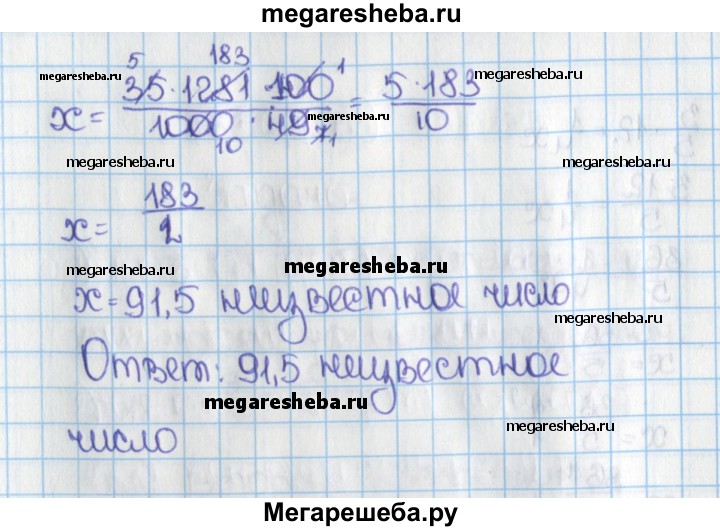 megaresheba.ru
5 183
megaresheba.ru 35·1281·100 1 megaresheba.ru
x = ――― = 5·183
1000 · 49 7 1 megaresheba.ru 10
megaresheba.ru 10 megaresheba.ru
183
x = ―
2
megaresheba.ru megaresheba.ru
x = 91,5 неизвестное число
megaresheba.ru
Ответ: 91,5 неизвестное
megaresheba.ru
megaresheba.ru
число
Мегарешеба.ру